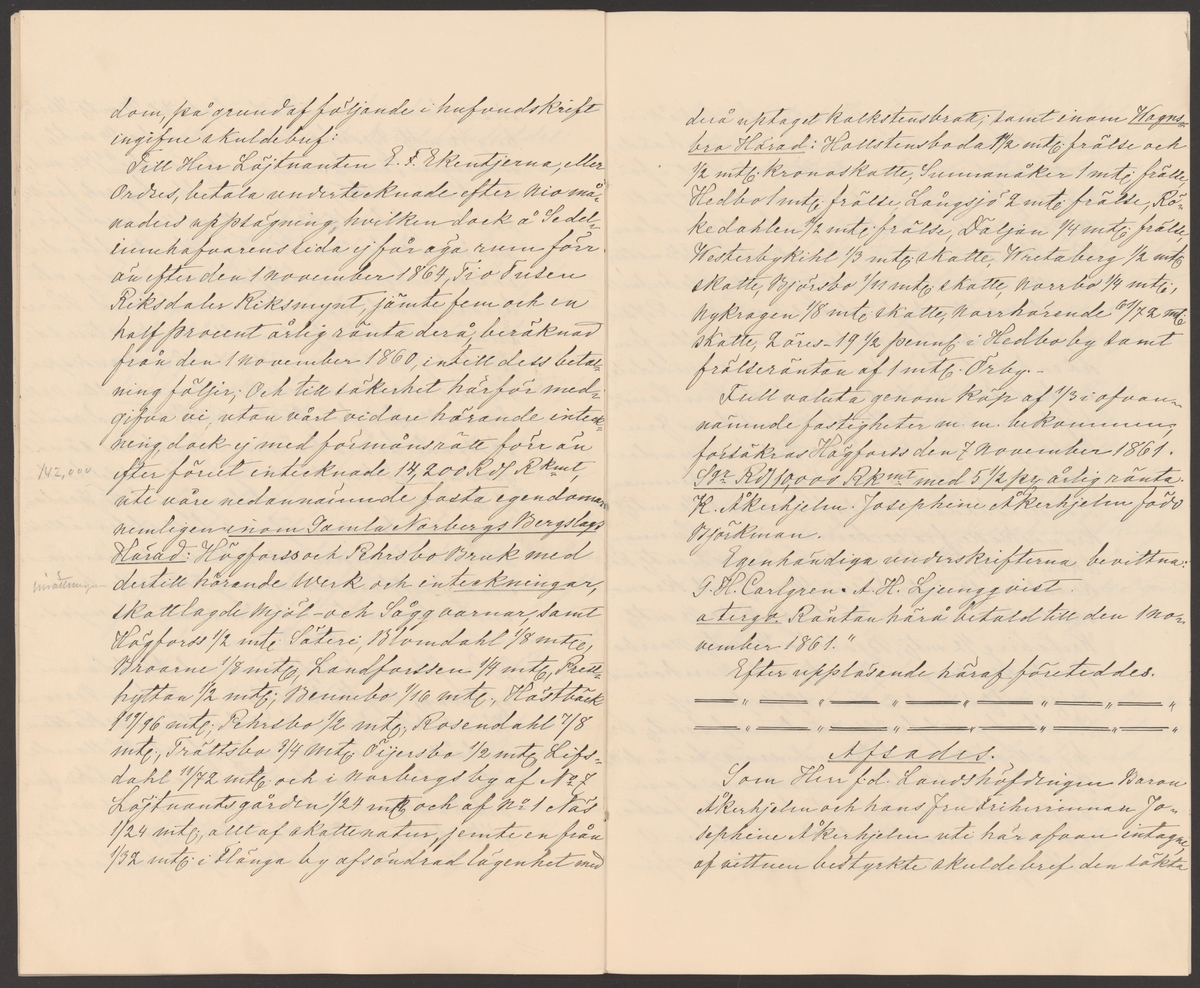 dom, på grund af följande i hufvudskrift
ingifne skuldebref:
Till Herr Löjtnanten E. F. Ekentjerna, eller
Ordres, betala undertecknade efter nio må-
naders uppsägning, hvilken dock å Sedel-
innehafvarens sida ej får äga rum förr
än efter den 1 November 1864, Tio Tusen
Riksdaler Riksmynt, jämte fem och en
half procent årlig ränta derå, beräknad
från den 1 November 1860, intill dess betal-
ning följer; Och till säkerhet härför med-
gifva vi, utan vårt vidare hörande inteck-
ning, dock ej med förmånsrätt förr än
142,000
efter förut intecknade 14,200 Rdr Rkmt,
uti våre nedannämnde fasta egendomar
nemligen inom Gamla Norbergs Bergslags
Härad: Högforss och Rhrsbo Bruk med
inrättningar
dertill hörande Werk och inteckningar,
skattlagde Mjöl- och Sågqvarnar, samt
Högforss 1/2 mtl Säteri, Blomdahl 1/8 mtl;
Broarne 1/8 mtl; Landforssen 1/4 mtl,
hyttan 1/2 mtl; Bennebo 1/16 mtl., Hästbäck
19/96 mtl; Rhrsbo 1/2 mtl; Rosendahl 7/8
mtl; Trättsbo 3/4 mtl; Öijersbo 1/2 mtl Lifs-
dahl 11/72 mtl och i Norbergsby af No 7
Löjtnantsgården 1/24 mtl och af No 1 Näs
1/24 mtl; allt af skattenatur, jemte en från
1/32 mtl: i Flänga by afsöndrad lägenhet med
derå uptaget kalkstensbrott; samt inom Wagns-
bro Härad: Hallstensboda 1 1/2 mtl frälse och
1/2 mtl: kronoskatte, Sunnanåker 1 mtl: frälse,
Hedbo 1 mtl frälse, Långsjö 2 mtl frälse, Rö-
kedahlen 1/2 mtl frälse, Daljan 1/4 mtl; frälse
Westerbykihl 1/3 mtl; skatte, Wretaberg 1/2 mtl
skatte, Björsbo 1/11 mtl; skatte, Norrbo 1/4 mtl;
Nykrogen 1/8 mtl skatte, Norrhörende 61/72 mtl
skatte, 2 öres 19 1/2 penng i Hedbo by samt
frälseräntan af 1 mtl. Örby.-
Full valuta genom köp af 1/3 i ofvan-
nämnde fastigheter m. m. bekommen,
försäkras Högforss den 7 November 1861.
Sgr Rdr 10,000 Rkmt med 5 1/2 pr årlig ränta.
K. Åkerhjelm. Josephine Åkerhjelm född
Björkman.
Egenhändiga underskrifterna bevittna:
G. H. Carlgren. A. H. Ljungqvist.
a tergo. Räntan härå betald till den 1 No-
vember 1861."
Efter uppläsande häraf företeddes.
Afsades.
Som Herr f.d. Landshöfdingen Baron
Åkerhjelm och hans Fru Friherrinnan Jo-
sephine Åkerhjelm uti här ofvan intagne
af vittnen bestyrkte skuldebref den sökta